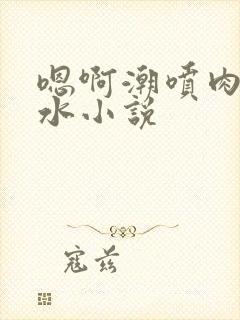 嗯啊潮喷肉
水小説
寇兹